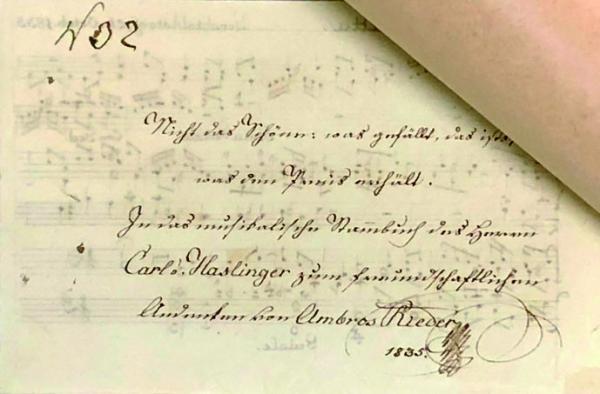 N 32
Nicht das Schöne: was gefällt, das ists,
was den Preis erhält.
In das musikalische Stammbuch des Herrn
Carl Haslinger zum freundschaftlichen
Andenken von Ambros Rieder
1835.